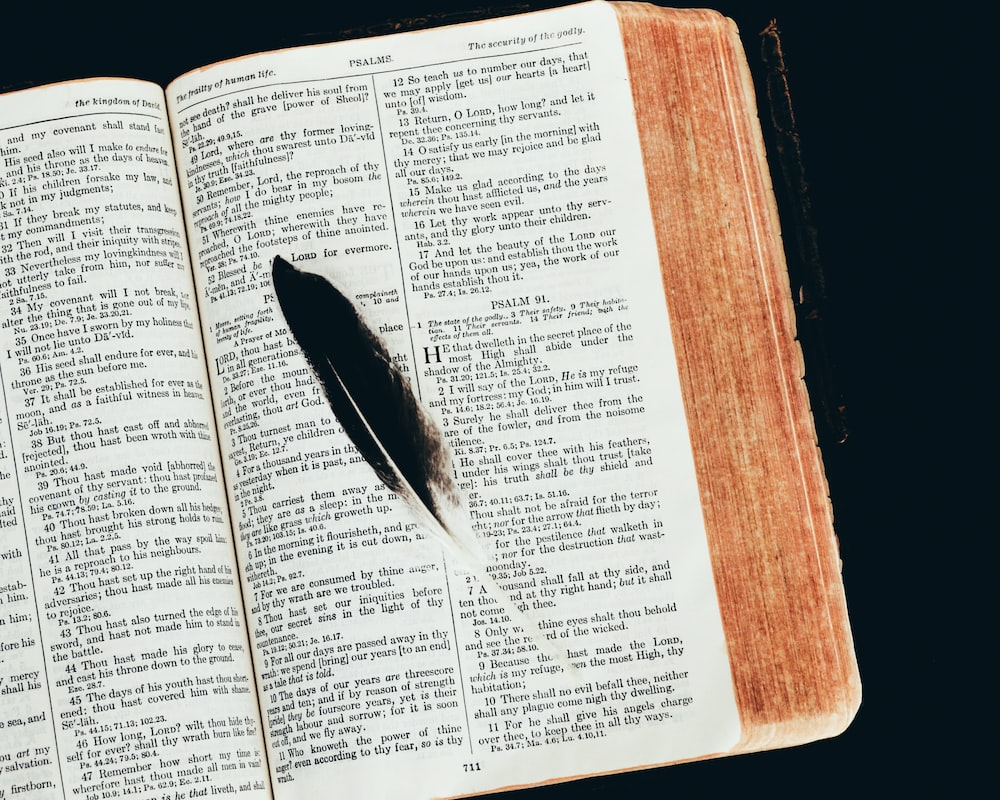 the kingdom of David.
and my covenant shall stand fast
him.
His seed also will I make to endure for
and his throne as the days of heaven.
If his children forsake my law, and
k not in my judgments;
31 If they break my statutes, and keep
t my commandments;
32 Then will I visit their transgression
with the rod, and their iniquity with stripes.
33 Nevertheless my lovingkindness will I
not utterly take from him, nor suffer my
faithfulness to fail.
2 Sa. 7.15.
34 My covenant will I not break, nor
alter the thing that is gone out of my lips.
Nu. 23.19; De. 7.9; Je. 33.20,21.
35 Once have I sworn by my holiness that
I will not lie unto Dā'-vĭd.
Ps. 60.6; Am. 4.2.
36 His seed shall endure for ever, and his
throne as the sun before me.
Ver. 29; Ps. 72.5.
37 It shall be established for ever as the
moon, and as a faithful witness in heaven.
Sē'-läh.
Job 16.19; Ps. 72.5.
38 But thou hast cast off and abhorred
[rejected], thou hast been wroth with thine
anointed.
Ps. 20.6; 44.9.
39 Thou hast made void [abhorred] the
covenant of thy servant: thou hast profaned
his crown by casting it to the ground.
Ps. 74.7; 78.59; La. 5.16.
40 Thou hast broken down all his hedges;
thou hast brought his strong holds to ruin.
Ps. 80.12; La. 2.2,5.
41 All that pass by the way spoil him:
he is a reproach to his neighbours.
Ps. 44.13; 79.4; 80.12.
42 Thou hast set up the right hand of his
adversaries; thou hast made all his enemies
to rejoice.
Ps. 13.2; 80.6.
43 Thou hast also turned the edge of his
sword, and hast not made him to stand in
the battle.
44 Thou hast made his glory to cease,
and cast his throne down to the ground.
Eze. 28.7.
45 The days of his youth hast thou short-
ened: thou hast covered him with shame.
Sē'-läh.
Ps. 44.15; 71.13; 102.23.
46 How long, LORD? wilt thou hide thy-
self for ever? shall thy wrath burn like fire?
Ps. 44.24; 79.5; 80.4.
47 Remember how short my time is:
wherefore hast thou made all men in vain?
Job 10.9; 14.1; Ps. 62.9; Ec. 2.11.
is he that liveth, and shall
The frailty of human life.
PSALMS.
The security of the godly.
not see death? shall he deliver his soul from
the hand of the grave [power of Sheol]?
Sē'-läh.
Ps. 22.29; 49.9,15.
49 Lord, where are thy former loving-
kindnesses, which thou swarest unto Dā'-vĭd
in thy truth [faithfulness]?
Ps. 30.9; Eze. 34.23.
50 Remember, Lord, the reproach of thy
servants; how I do bear in my bosom the
reproach of all the mighty people;
Ps. 69.9; 74.18,22.
51 Wherewith thine enemies have re-
proached, O LORD; wherewith they have
reproached the footsteps of thine anointed.
Ver. 38; Ps. 74.10.
52 Blessed be LORD for evermore.
Ā'-mĕn, and Ā'-m
Ps. 41.13; 72.19; 106
PS
1 Moses, setting forth complaineth
of human fragility 10 and
brevity of life.
A Prayer of Mo
LORD, thou hast b place
in all generations.
De. 33.27; Eze. 11.16.
2 Before the moun
forth, or ever thou had
and the world, even fr
everlasting, thou art God.
Pr. 8.25,26.
3 Thou turnest man to
sayest, Return, ye children o
Ge. 3.19; Ec. 12.7.
4 For a thousand years in thy
as yesterday when it is past, and
in the night.
2 Pe. 3.8.
5 Thou carriest them away as
flood; they are as a sleep: in the m
they are like grass which groweth up.
Ps. 73.20; 103.15; Is. 40.6.
6 In the morning it flourisheth, and gro
eth up; in the evening it is cut down, a
withereth.
Job 14.2; Ps. 92.7.
7 For we are consumed by thine anger,
and by thy wrath are we troubled.
8 Thou hast set our iniquities before
thee, our secret sins in the light of thy
countenance.
Ps. 19.12; 50.21; Je. 16.17.
9 For all our days are passed away in thy
wrath: we spend [bring] our years [to an end]
as a tale that is told.
10 The days of our years are threescore
years and ten; and if by reason of strength
[pride] they be fourscore years, yet is their
strength labour and sorrow; for it is soon
cut off, and we fly away.
11 Who knoweth the power of thine
anger? even according to thy fear, so is thy
wrath.
12 So teach us to number our days, that
we may apply [get us] our hearts [a heart]
unto [of] wisdom.
Ps. 39.4.
13 Return, O LORD, how long? and let it
repent thee concerning thy servants.
De. 32.36; Ps. 135.14.
14 O satisfy us early [in the morning] with
thy mercy; that we may rejoice and be glad
all our days.
Ps. 85.6; 149.2.
15 Make us glad according to the days
wherein thou hast afflicted us, and the years
wherein we have seen evil.
16 Let thy work appear unto thy serv-
ants, and thy glory unto their children.
Hab. 3.2.
17 And let the beauty of the LORD our
God be upon us: and establish thou the work
of our hands upon us; yea, the work of our
hands establish thou it.
Ps. 27.4; Is. 26.12.
PSALM 91.
1 The state of the godly. 3 Their safety. 9 Their habita-
tion. 11 Their servants. 14 Their friend; with the
effects of them all.
HE that dwelleth in the secret place of the
most High shall abide under the
shadow of the Almighty.
Ps. 31.20; 121.5; Is. 25.4; 32.2.
2 I will say of the LORD, He is my refuge
and my fortress: my God; in him will I trust.
Ps. 14.6; 18.2; 56.4; Je. 16.19.
3 Surely he shall deliver thee from the
are of the fowler, and from the noisome
stilence.
Ki. 8.37; Pr. 6.5; Ps. 124.7.
He shall cover thee with his feathers,
under his wings shalt thou trust [take
: his truth shall be thy shield and
er.
36.7; 40.11; 63.7; Is. 51.16.
Thou shalt not be afraid for the terror
ght; nor for the arrow that flieth by day;
.19-23; Ps. 23.4; 27.1; 64.4.
for the pestilence that walketh in
; nor for the destruction that wast-
noonday.
9.35; Job 5.22.
7 A thousand shall fall at thy side, and
ten thou nd at thy right hand; but it shall
not come gh thee.
Jos. 14.10.
8 Only wi thine eyes shalt thou behold
and see the re rd of the wicked.
Ps. 37.34; 58.10.
9 Because th hast made the LORD,
which is my refuge, en the most High, thy
habitation;
10 There shall no evil befall thee, neither
shall any plague come nigh thy dwelling.
11 For he shall give his angels charge
over thee, to keep thee in all thy ways.
Ps. 34.7; Ma. 4.6; Lu. 4.10,11.
711